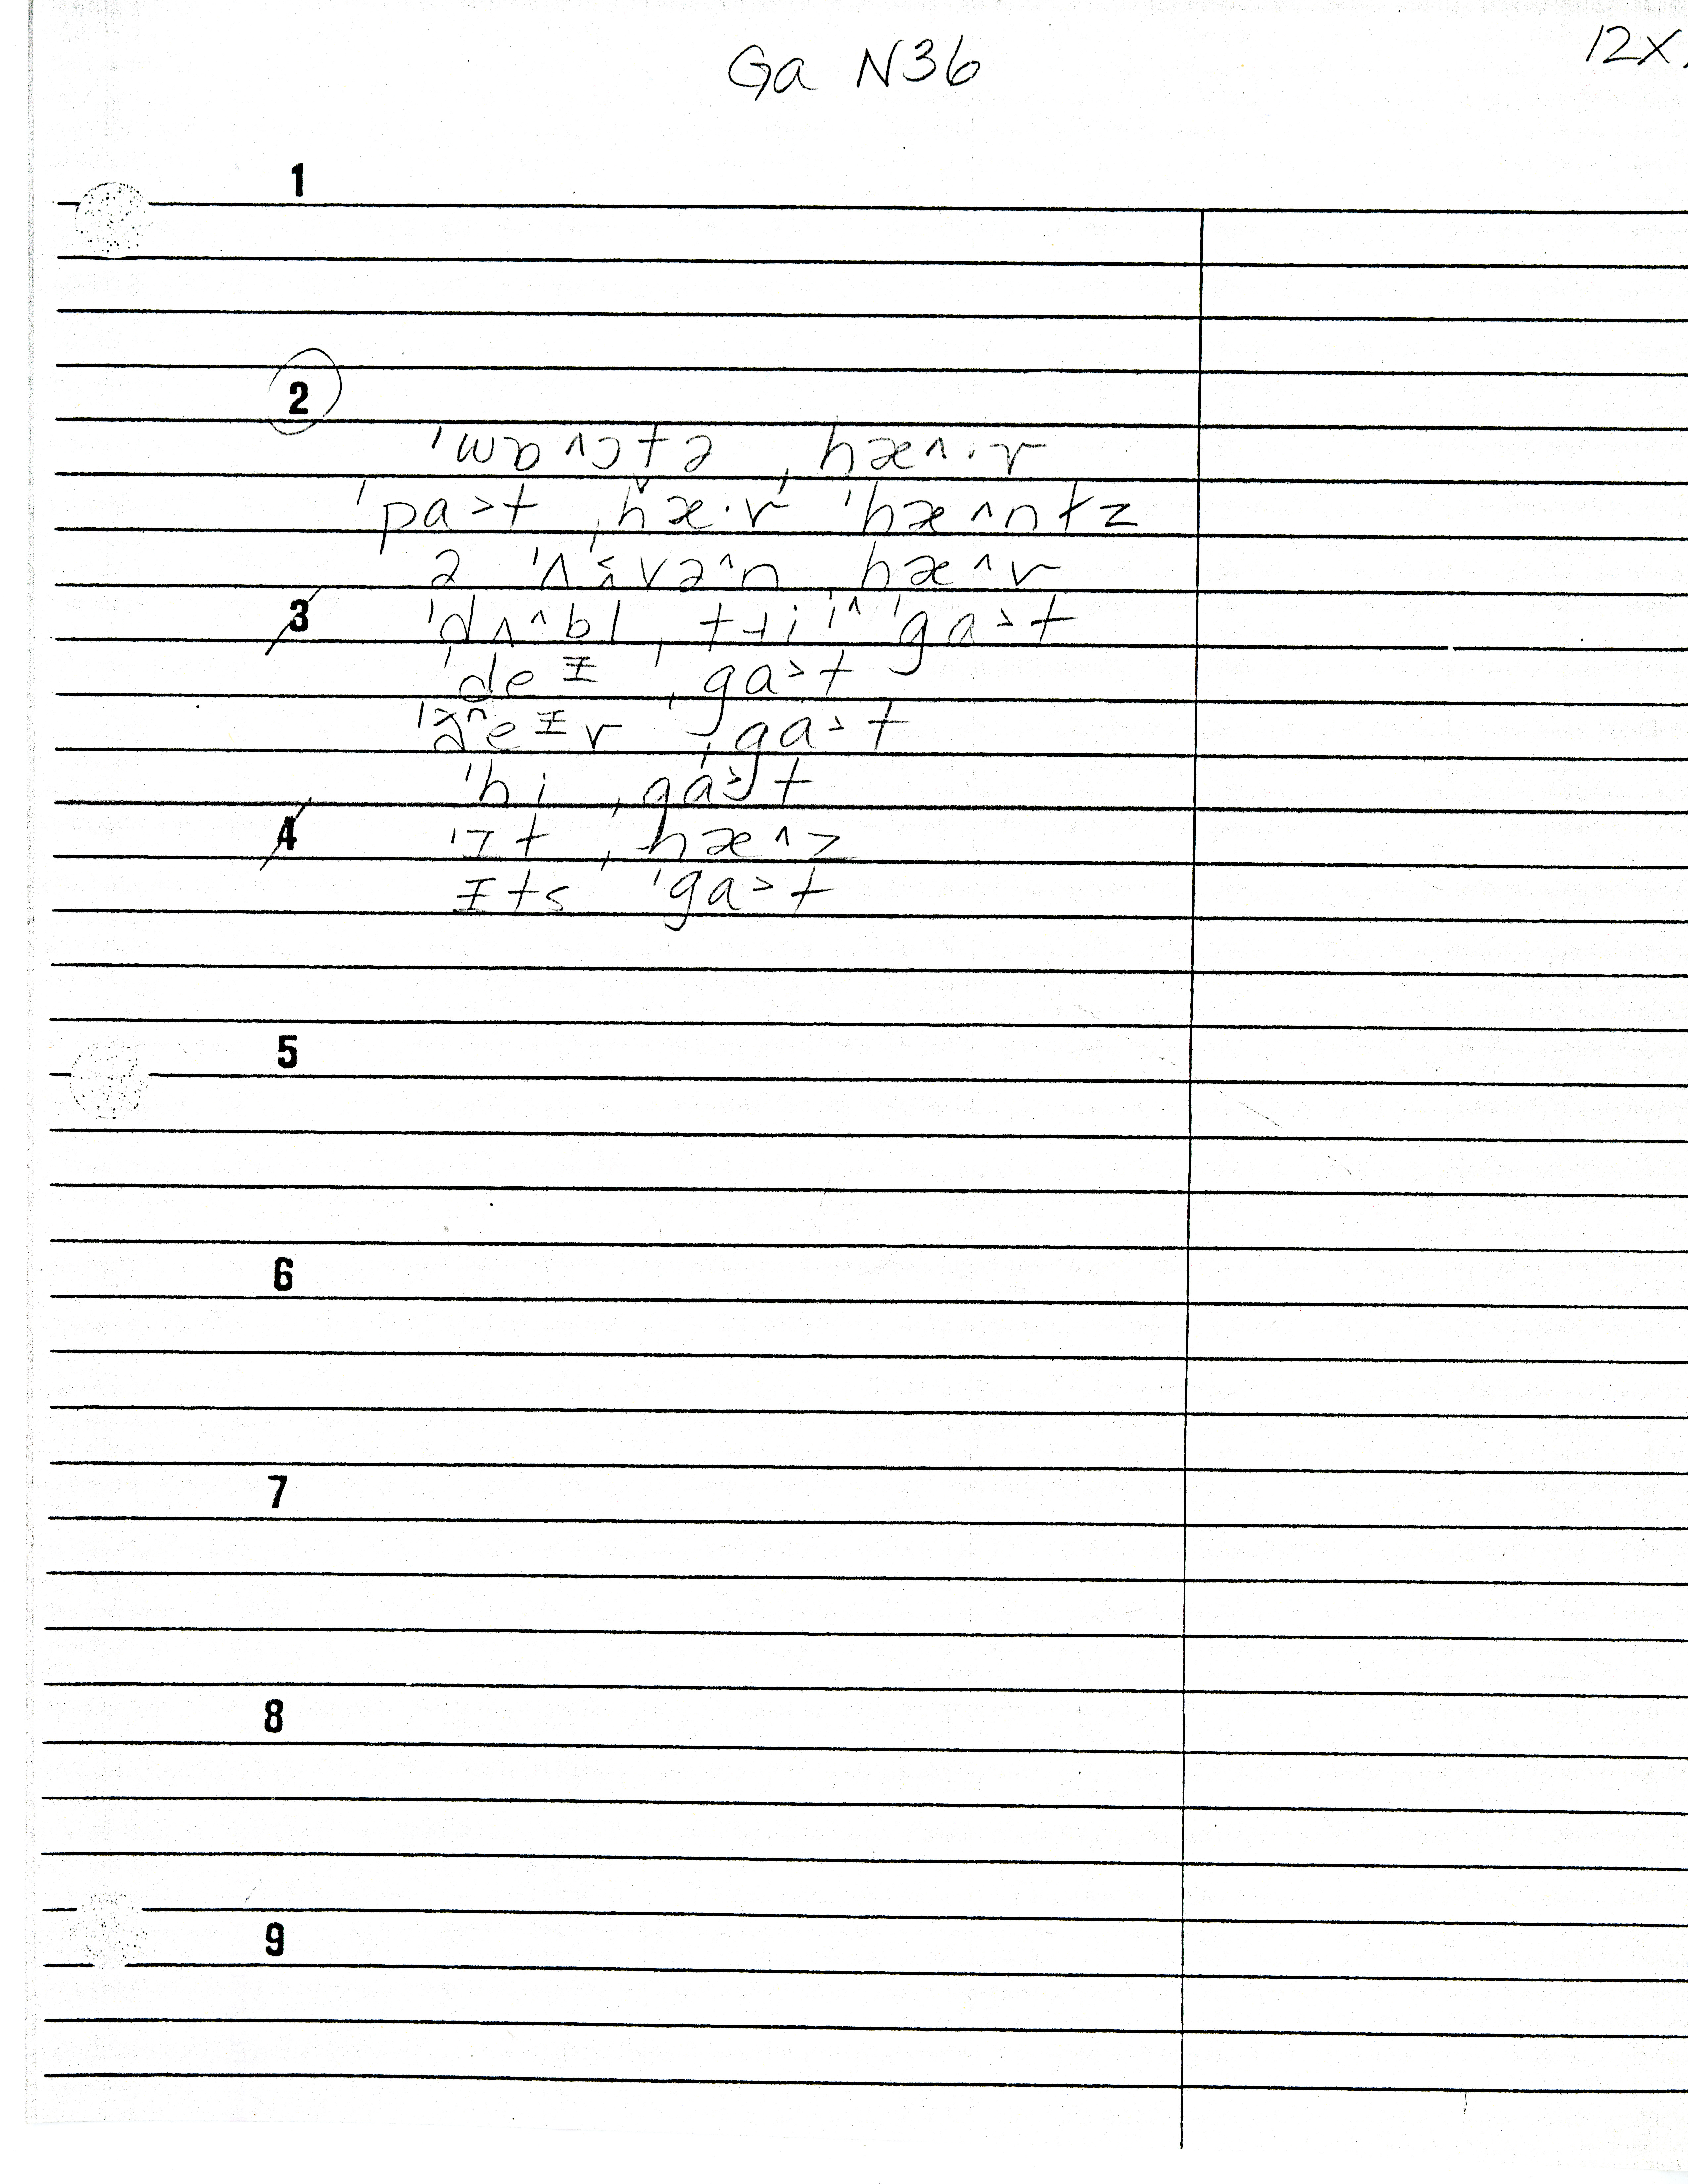 Ga N36
12X
1
2
ˈwɒ^ɔtə ˌhæ^·v
ˈpa>t ˌhæ·v ˈhæ^ntz
ə ˈʌ<və^n hæ^v
3 ˈdʌ^bl ˌtɹi i^ ˈga>t
ˈdeɪ ˌga>t
eɪv ˌga>t
ˈhi ˌga>t
4 ˈɪt ˌhæ^z
ɪts ˈga>t
5
6
7
8
9